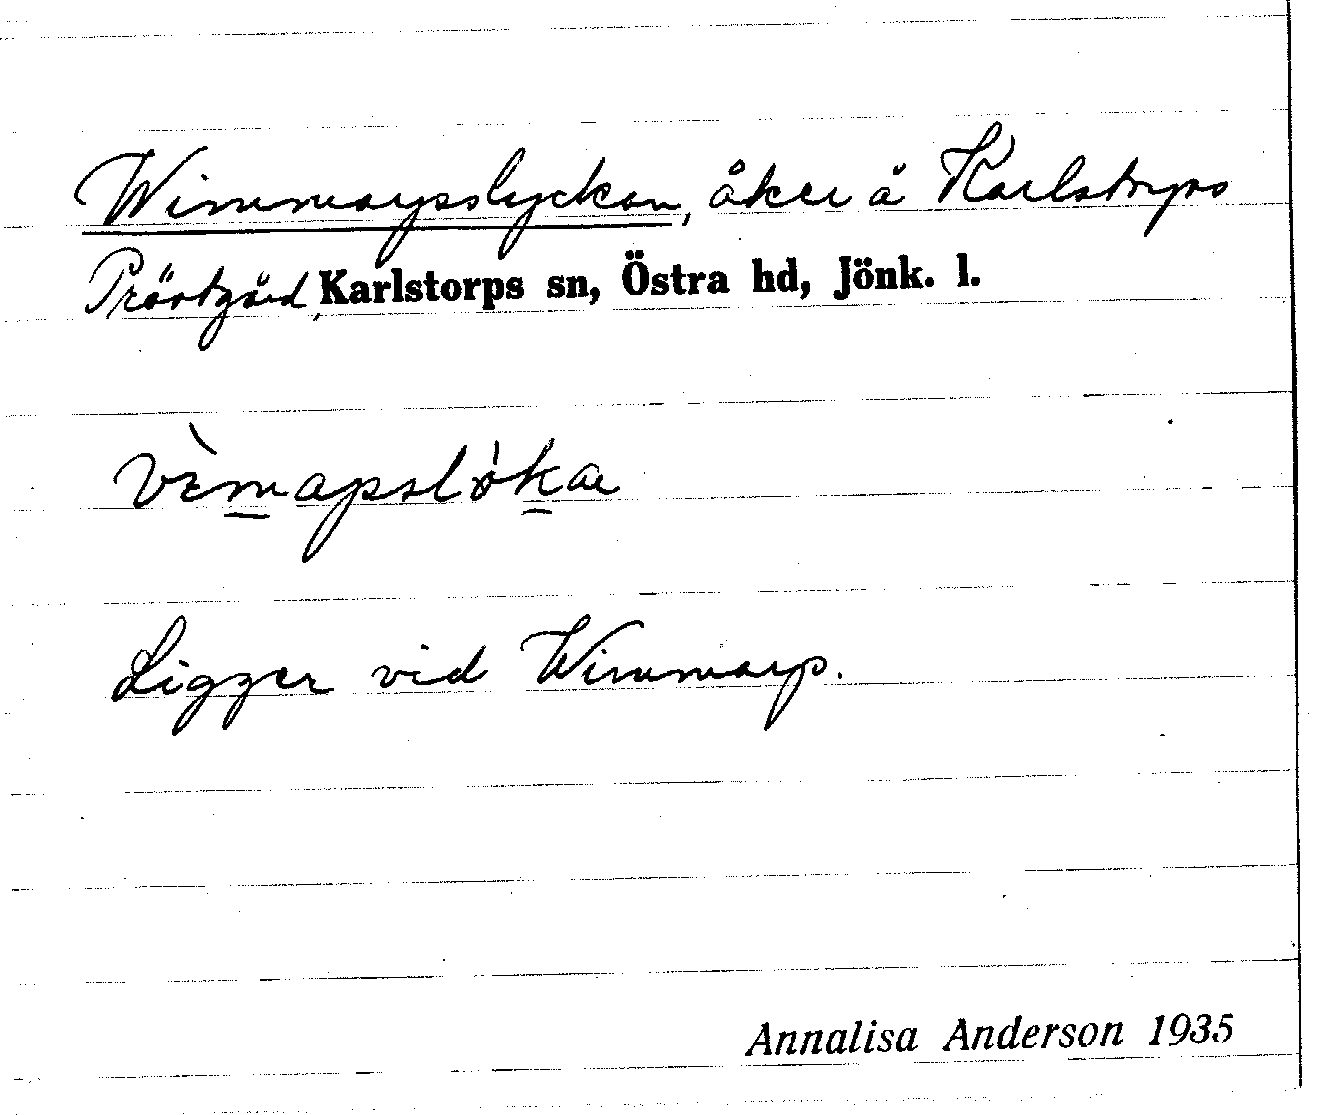 Wimmarpslyckan, åker å Karlstorps
Prästgård, Karlstorps sn, Östra hd, Jönk. l.
vὲmapslökα
Ligger vid Wimmarp.
Annalisa Anderson 1935